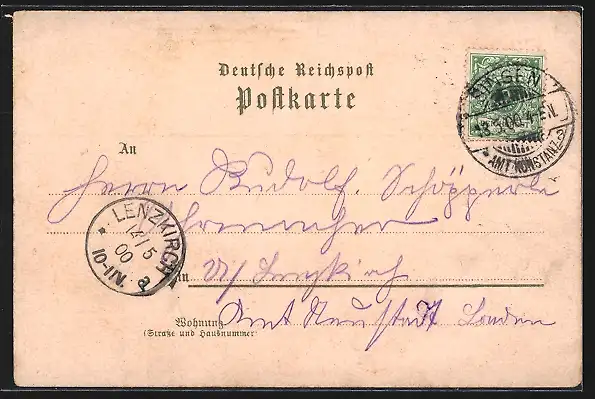 Deutsche Reichspost
Postkarte
SINGEN
13.5.00.4-5N.
* AMT KONSTANZ
An
Herrn Rudolf Schöpperle
LENZKIRCH
14/5
00
10-11V.
a
in
Lenzkirch
Wohnung
(Straße und Hausnummer)
Amt Neustadt Baden